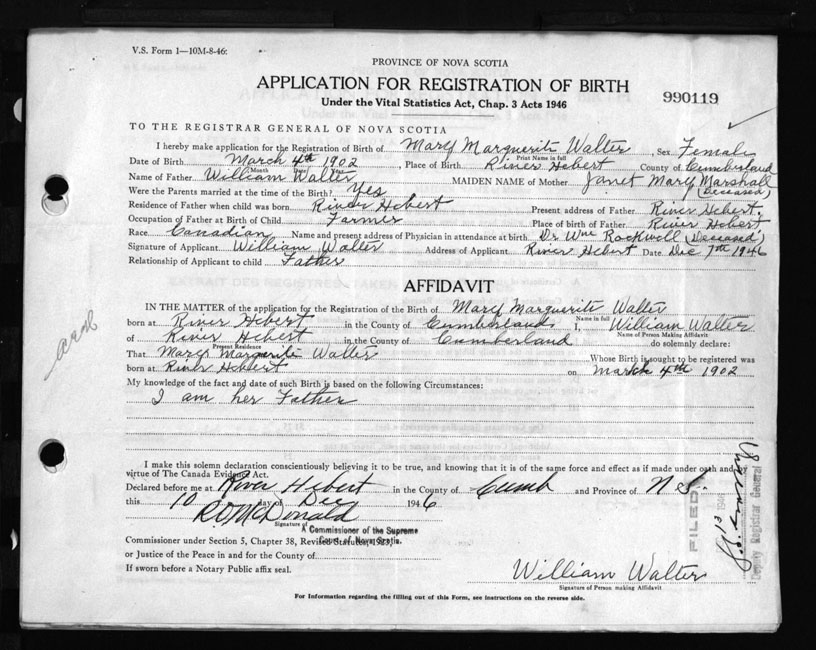 V.S. Form 1—10M-8-46:
PROVINCE OF NOVA SCOTIA
APPLICATION FOR REGISTRATION OF BIRTH
Under the Vital Statistics Act, Chap. 3 Acts 1946
990119
TO THE REGISTRAR GENERAL OF NOVA SCOTIA
I hereby make application for the Registration of Birth of Mary Marguerite Walter, Sex Female
Print Name in full
Date of Birth March 4th 1902, Place of Birth River Hebert County of Cumberland
Month Year
Name of Father William Walter MAIDEN NAME of Mother Janet Mary Marshall
(Deceased)
Were the Parents married at time of the Birth? Yes
Residence of Father when child was born River Hebert Present address of Father River Hebert.
Occupation of Father at Birth of Child Farmer Place of birth of Father River Hebert
Race Canadian Name and present address of Physician in attendance at birth Dr Wm Rockwell (Deceased)
Signature of Applicant William Walter Address of Applicant River Hebert Date Dec 7th 1946
Relationship of Applicant to child Father
AFFIDAVIT
IN THE MATTER of the application for the Registration of the Birth of Mary Marguerite Walter
Name in full
born at River Hebert in the County of Cumberland I, William Walter
Name of Person Making Affidavit
of River Hebert in the County of Cumberland do solemnly declare:
Present Residence
That Mary Marguerite Walter Whose Birth is sought to be registered was
born at River Hebert on March 4th 1902
My knowledge of the fact and date of such Birth is based on the following Circumstances:
I am her Father
I make this solemn declaration conscientiously believing it to be true, and knowing that it is of the same force and effect as if made under oath and by
virtue of The Canada Evidence Act.
Declared before me at River Hebert in the County of Cumb and Province of N.S.
this 10 day of Dec 1946
R D McDonald
Signature of
A Commissioner of the Supreme
Court of Nova Scotia.
Commissioner under Section 5, Chapter 38, Revised Statutes, 1923,
or Justice of the Peace in and for the County of
If sworn before a Notary Public affix seal.
William Walter
Signature of Person making Affidavit
For Information regarding the filling out of this Form, see instructions on the reverse side.
FILED
Deputy Registrar General